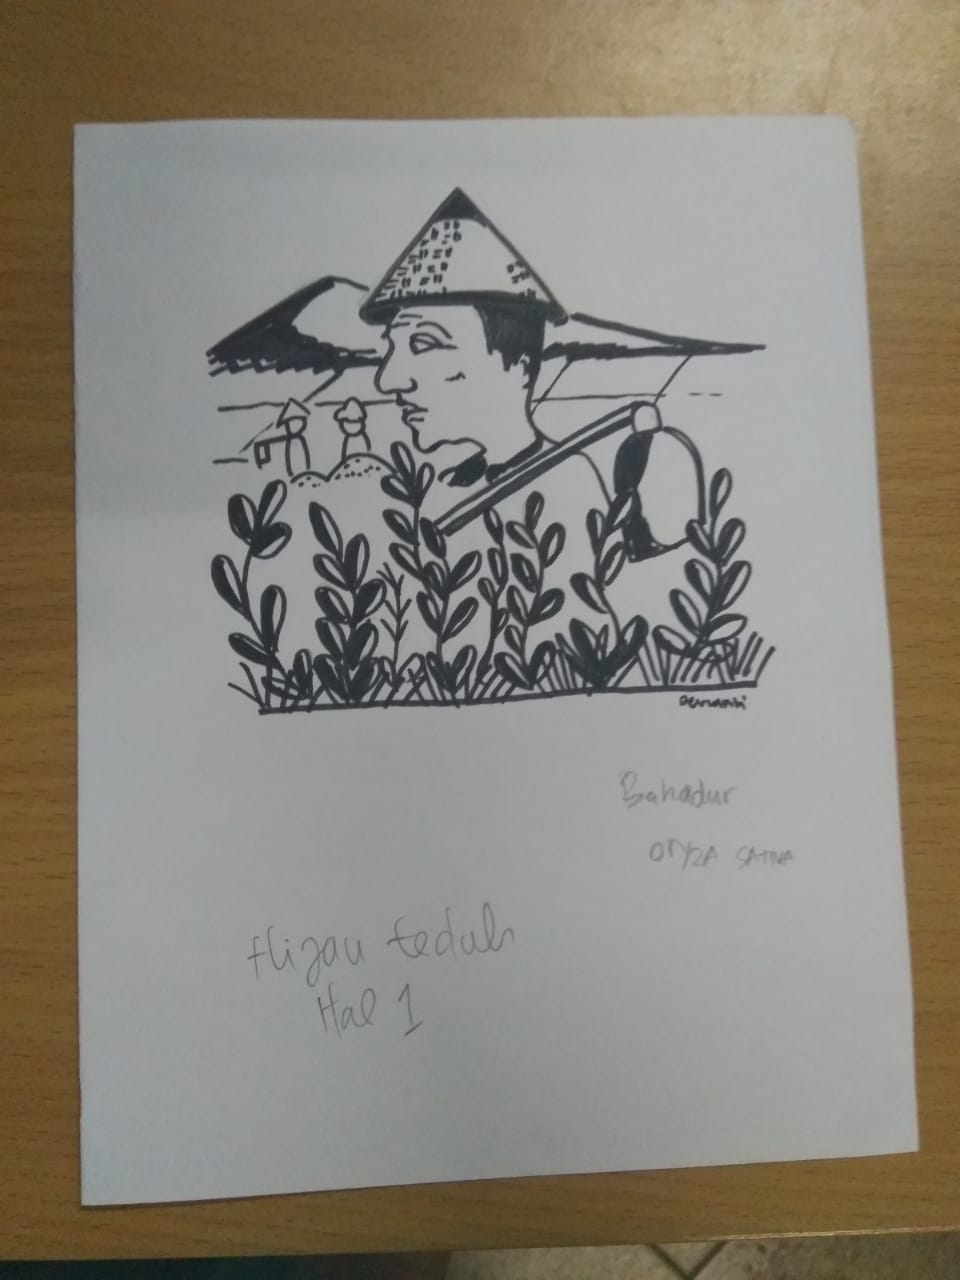 Bahadur
ORYZA SATIVA
Hijau teduh
Hal 1